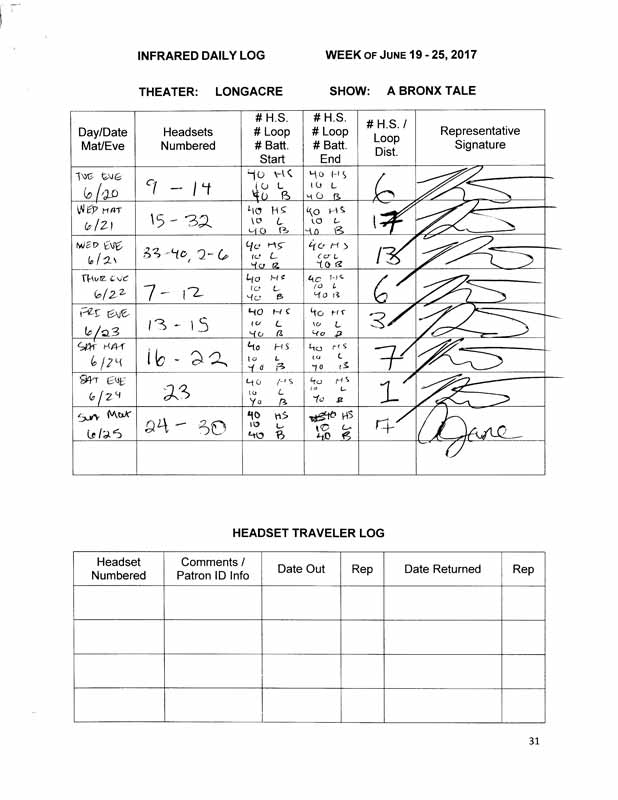 INFRARED DAILY LOG WEEK OF JUNE 19 - 25, 2017
THEATER: LONGACRE SHOW: A BRONX TALE
Day/Date Mat/Eve | Headsets Numbered | # H.S. # Loop # Batt. Start | # H.S. # Loop # Batt. End | # H.S. / Loop Dist. | Representative Signature
TUE EVE 6/20 | 9 - 14 | 40 HS 10 L 40 B | 40 HS 10 L 40 B | 6
WED MAT 6/21 | 15 - 32 | 40 HS 10 L 40 B | 40 HS 10 L 40 B | 17
WED EVE 6/21 | 33-40, 2-6 | 40 HS 10 L 40 B | 40 HS 10 L 40 B | 13
THUR EVE 6/22 | 7 - 12 | 40 HS 10 L 40 B | 40 HS 10 L 40 B | 6
FRI EVE 6/23 | 13 - 15 | 40 HS 10 L 40 B | 40 HS 10 L 40 B | 3
SAT MAT 6/24 | 16 - 22 | 40 HS 10 L 40 B | 40 HS 10 L 40 B | 7
SAT EVE 6/24 | 23 | 40 HS 10 L 40 B | 40 HS 10 L 40 B | 1
Sun Mat 6/25 | 24 - 30 | 40 HS 10 L 40 B | 40 HS 10 L 40 B | 7
HEADSET TRAVELER LOG
Headset Numbered | Comments / Patron ID Info | Date Out | Rep | Date Returned | Rep
31